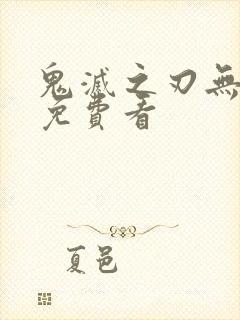 鬼滅之刃無
免費看
夏邑